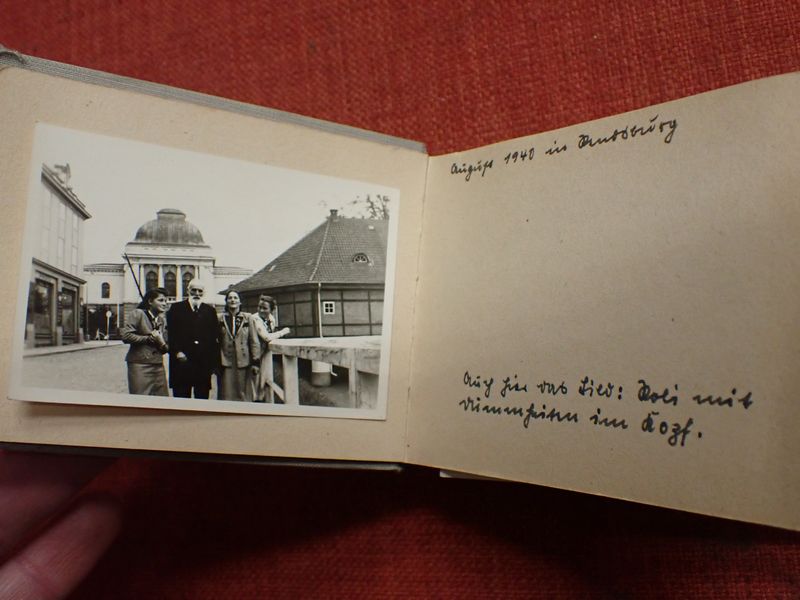 August 1940 in Rendsburg
Auch hier das Bild: Roli mit
Dummheiten im Kopf.